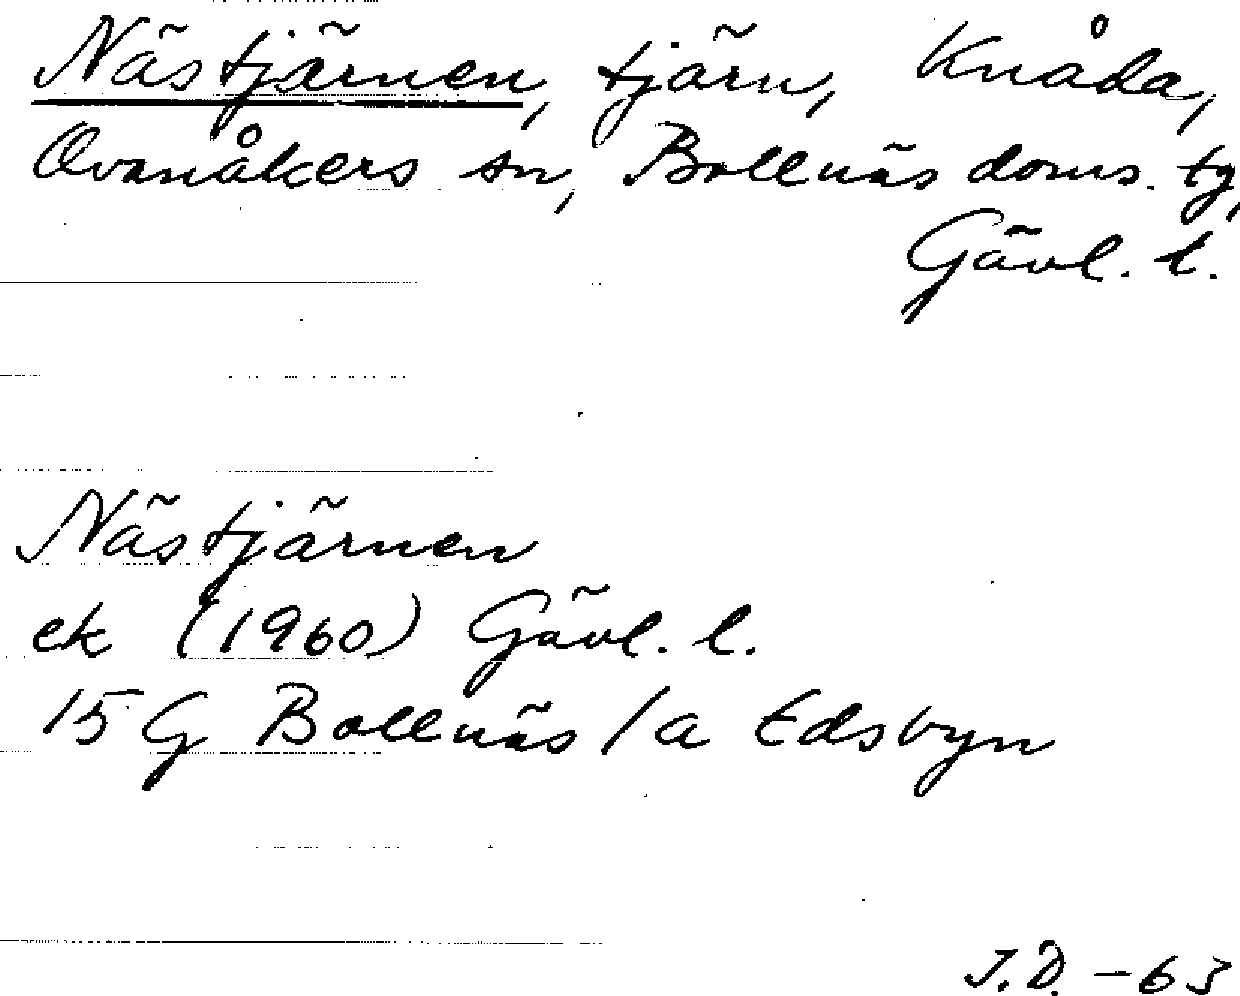 Nästjärnen, tjärn, Knåda,
Ovanåkers sn, Bollnäs doms. tg,
Gävl. l.
Nästjärnen
ek (1960) Gävl. l.
15 G Bollnäs /a Edsbyn
J.D. -63